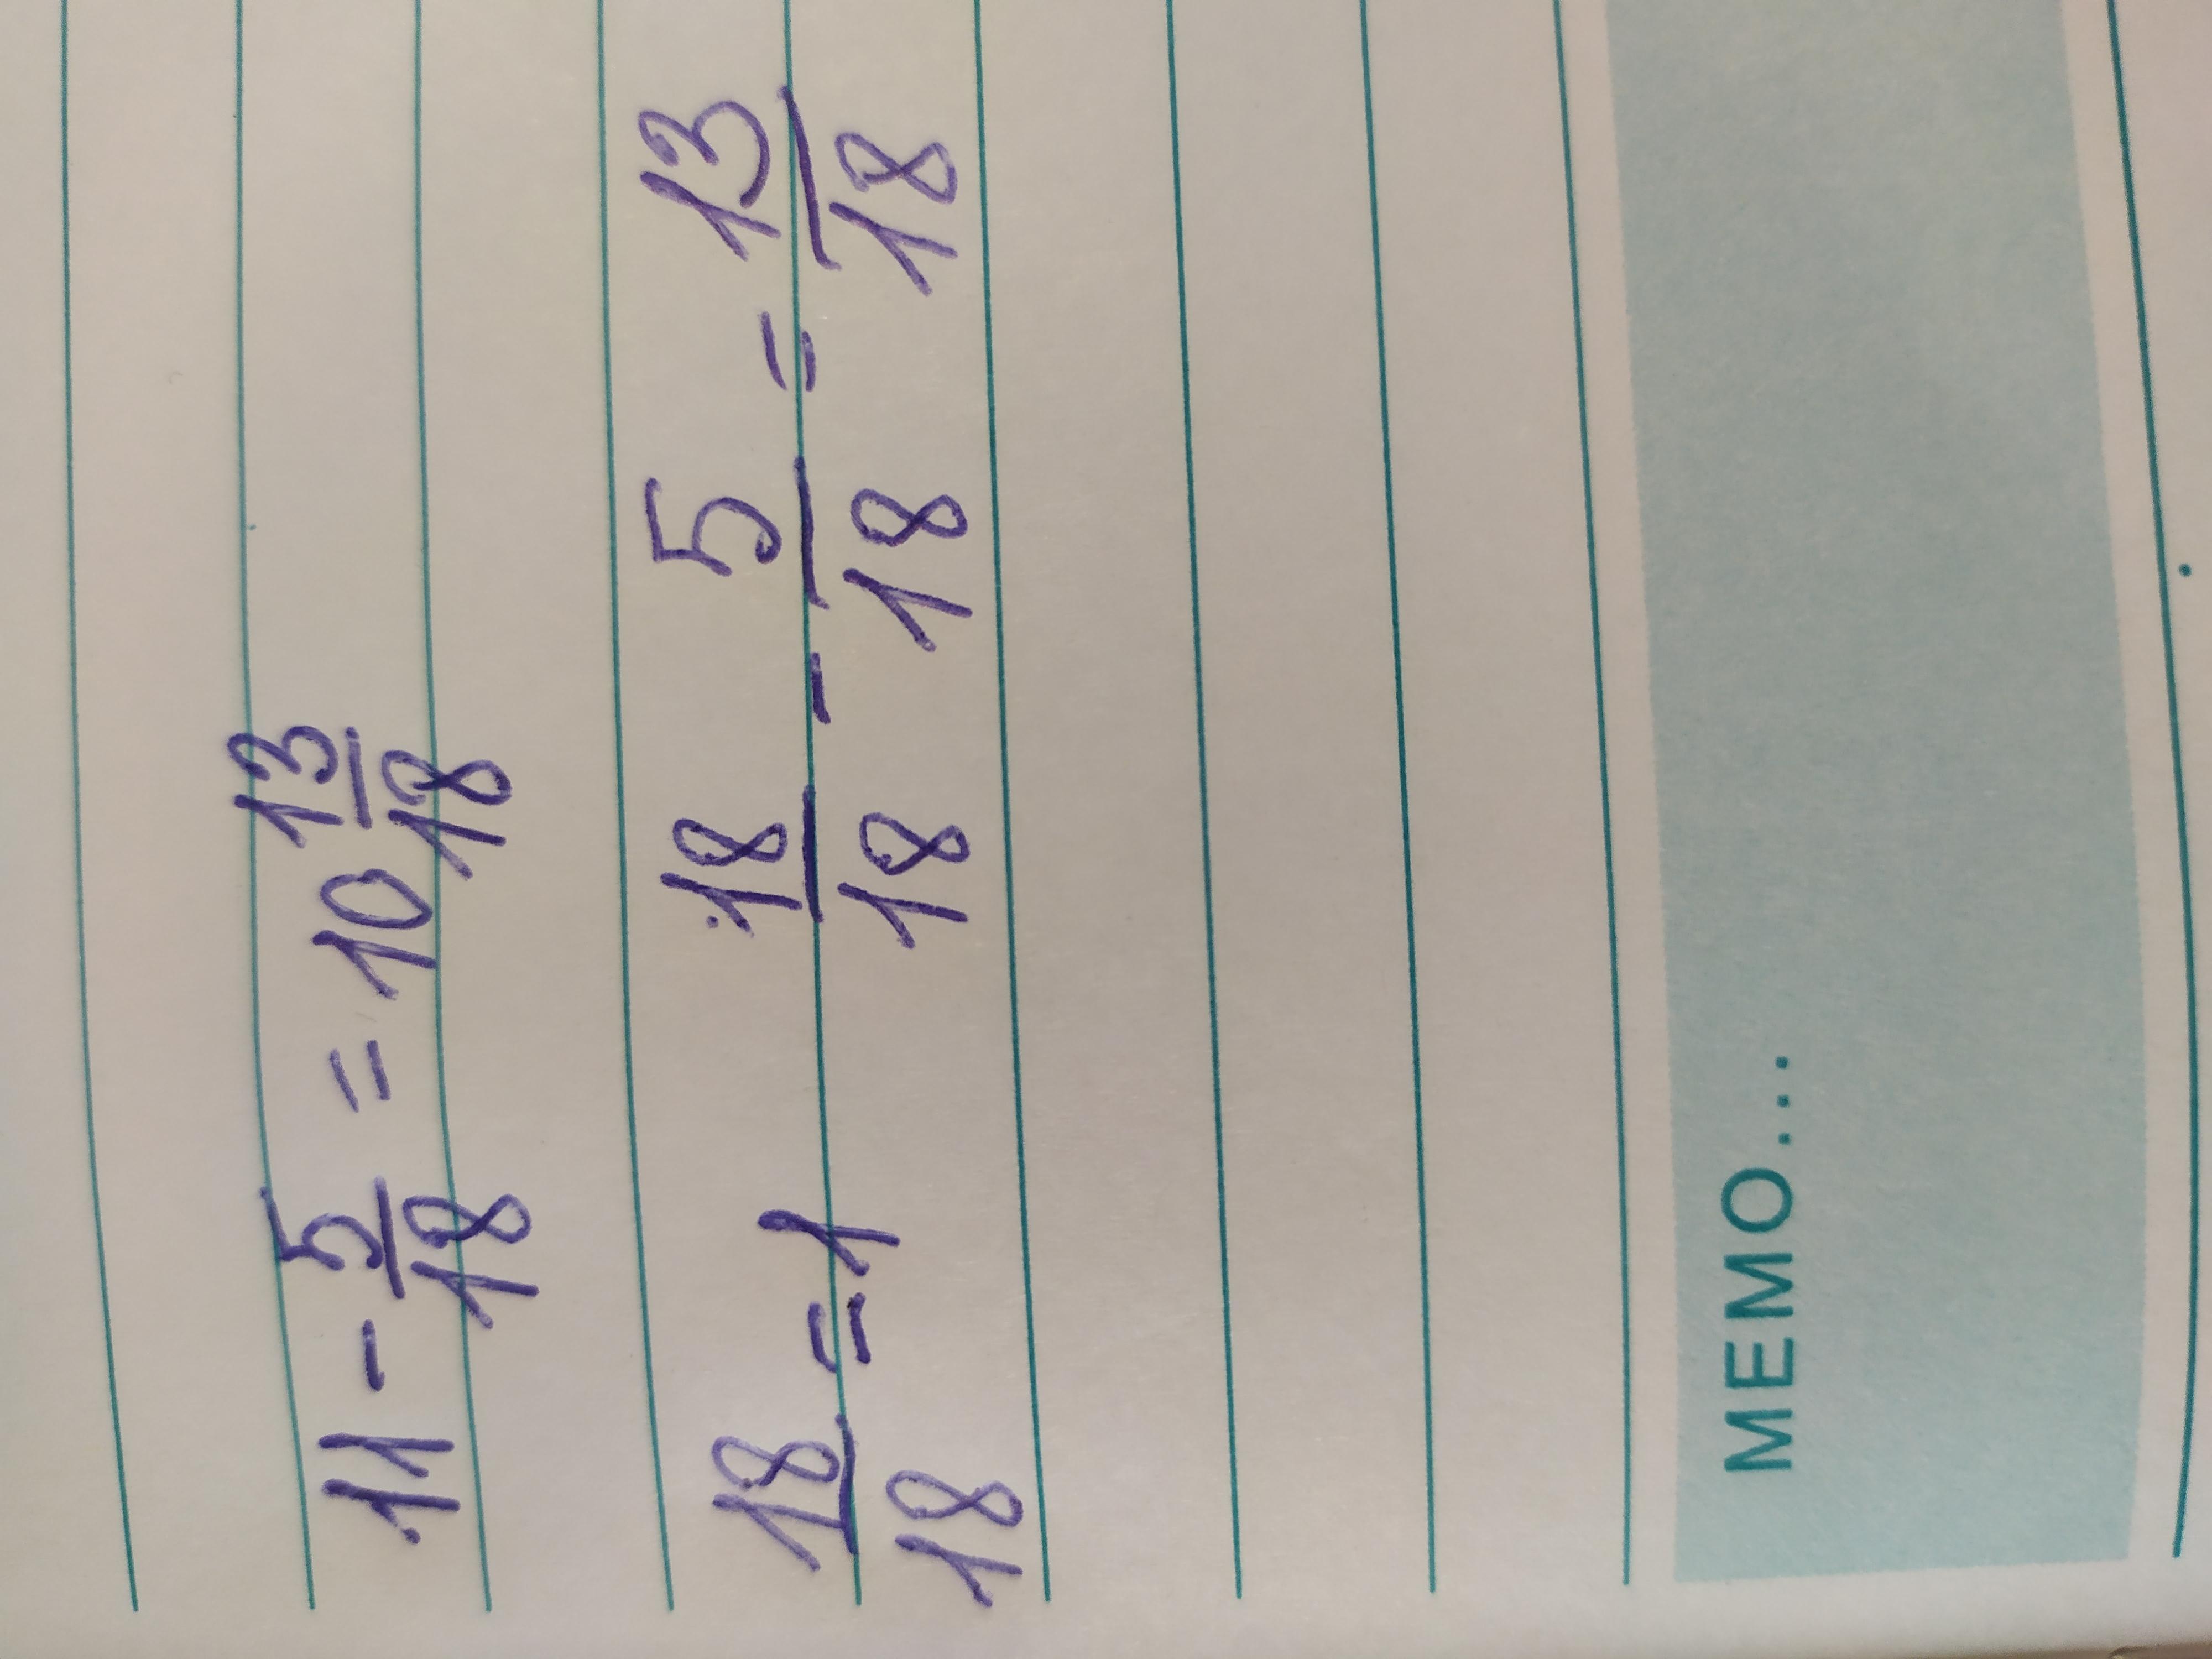 11 - 5/18 = 10 13/18
18/18 = 1 18/18 - 5/18 = 13/18
MEMO...